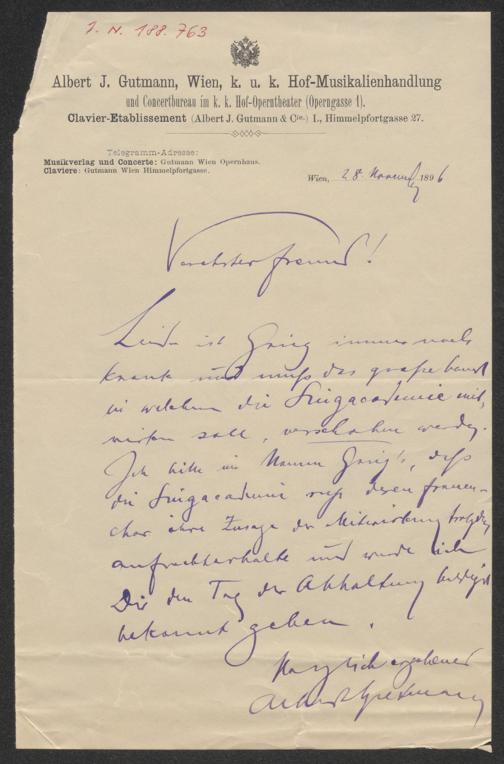 J. N. 188.763
Albert J. Gutmann, Wien, k. u. k. Hof-Musikalienhandlung
und Concertbureau im k. k. Hof-Operntheater (Operngasse 1).
Clavier-Etablissement (Albert J. Gutmann & Cie.) I., Himmelpfortgasse 27.
Telegramm-Adresse:
Musikverlag und Concerte: Gutmann Wien Opernhaus.
Claviere: Gutmann Wien Himmelpfortgasse.
Wien, 28. November 1896
Verehrter Freund!
Leider ist Grieg immer noch
krank und muß das große Concert
in welchem die Singacademie mit-
wirken soll, verschoben werden.
Ich bitte im Namen Grieg's, daß
die Singacademie resp. deren Frauen-
chor ihre Zusage der Mitwirkung trotzdem
aufrechterhalte und werde ich
Dir den Tag der Abhaltung baldigst
bekannt geben.
Herzlich ergebener
Albert Gutmann